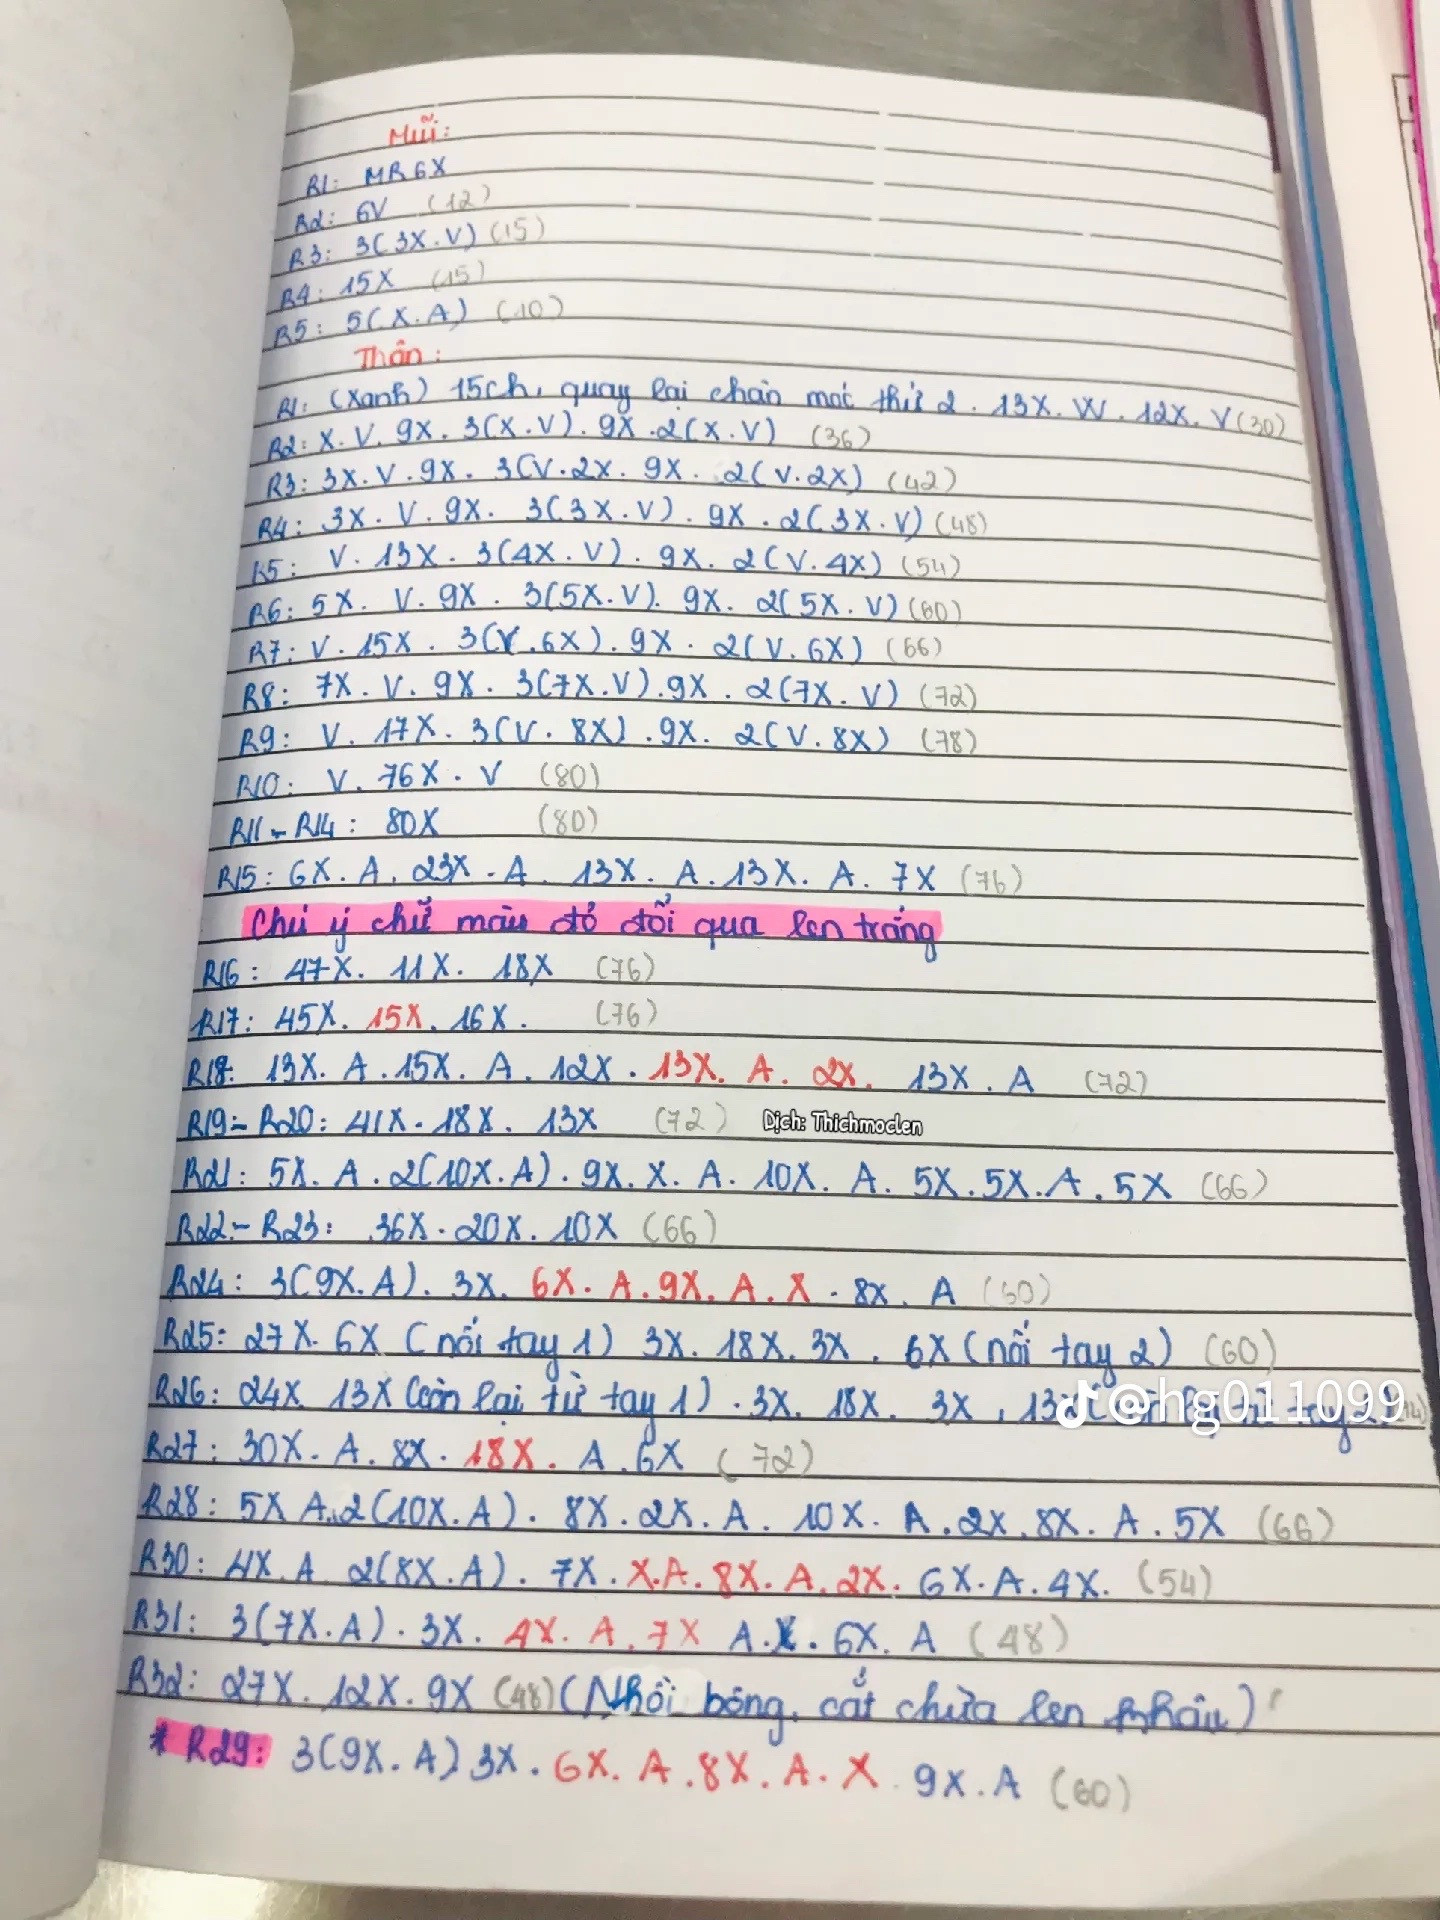 Mũi:
R1: MR 6X
R2: 6V (12)
R3: 3(3X.V) (15)
R4: 15X (15)
R5: 5(X.A) (10)
Thân:
R1: (Xanh) 15ch, quay lại chân mũi thứ 2. 13X. W. 12X. V (30)
R2: X. V. 9X. 3(X.V). 9X. 2(X.V) (36)
R3: 3X. V. 9X. 3(V.2X. 9X. 2(V.2X) (42)
R4: 3X. V. 9X. 3(3X.V). 9X. 2(3X.V) (48)
R5: V. 13X. 3(4X.V). 9X. 2(V.4X) (54)
R6: 5X. V. 9X. 3(5X.V). 9X. 2(5X.V) (60)
R7: V. 15X. 3(V.6X). 9X. 2(V.6X) (66)
R8: 7X. V. 9X. 3(7X.V). 9X. 2(7X.V) (72)
R9: V. 17X. 3(V.8X). 9X. 2(V.8X) (78)
R10: V. 76X. V (80)
R11 - R14: 80X (80)
R15: 6X. A. 23X. A. 13X. A. 13X. A. 7X (76)
Chú ý chữ màu đỏ đổi qua len trắng
R16: 47X. 11X. 18X (76)
R17: 45X. 15X. 16X. (76)
R18: 13X. A. 15X. A. 12X. 13X. A. 2X. 13X. A (72)
R19 - R20: 41X. 18X. 13X (72) Dịch: Thichmoclen
R21: 5X. A. 2(10X.A). 9X. X. A. 10X. A. 5X. 5X. A. 5X (66)
R22 - R23: 36X. 20X. 10X (66)
R24: 3(9X.A). 3X. 6X. A. 9X. A. X. 8X. A (60)
R25: 27X. 6X (nối tay 1) 3X. 18X. 3X. 6X (nối tay 2) (60)
R26: 24X 13X (còn lại từ tay 1). 3X. 18X. 3X. 13X @hg011099
R27: 30X. A. 8X. 18X. A. 6X (72)
R28: 5X A. 2(10X.A). 8X. 2X. A. 10X. A. 2X. 8X. A. 5X (66)
R30: 4X. A 2(8X.A). 7X. X.A. 8X. A. 2X. 6X. A. 4X. (54)
R31: 3(7X.A). 3X. 4X. A. 7X A.X. 6X. A (48)
R32: 27X. 12X. 9X (48) (Nhồi bông, cắt chừa len khâu)
* R29: 3(9X.A) 3X. 6X. A. 8X. A. X 9X. A (60)